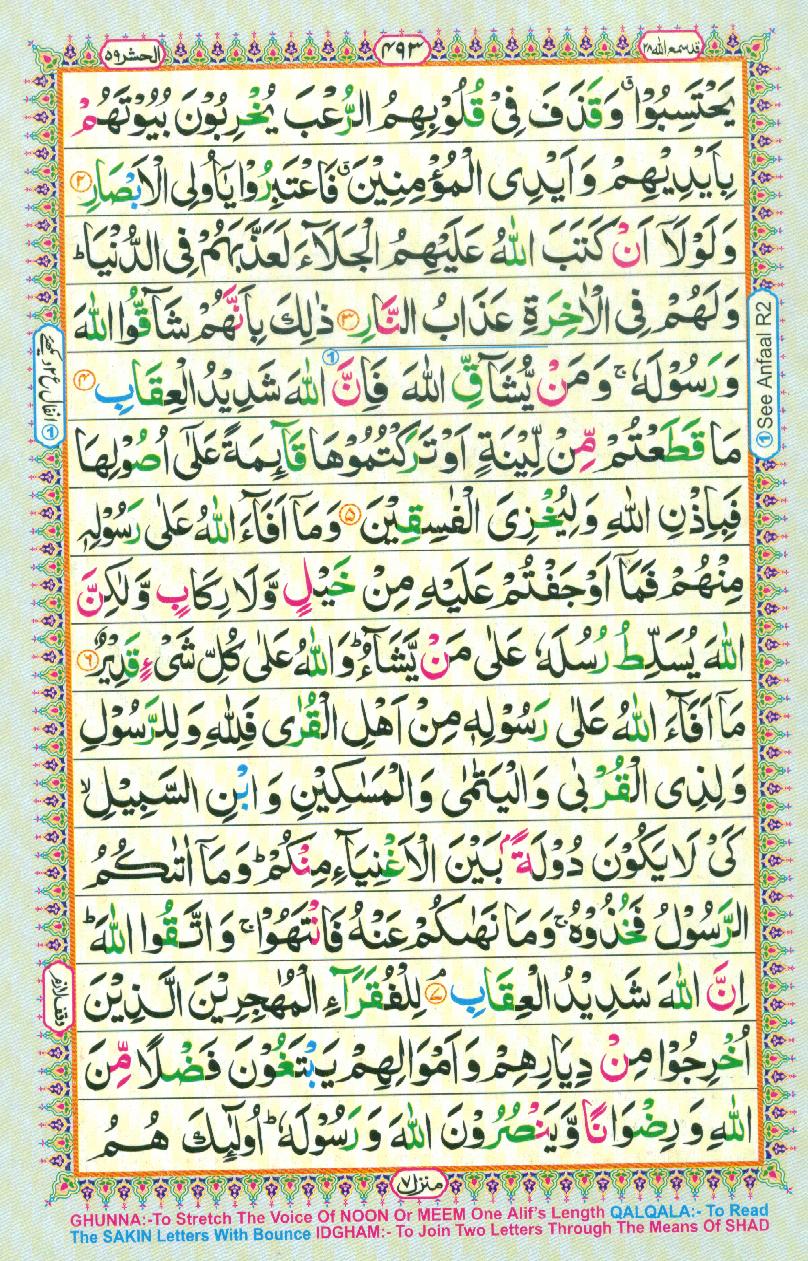 قد سمع الله ٢٨
٤٩٣
الحشر ٥٩
يَحْتَسِبُوْا ۗ وَقَذَفَ فِىْ قُلُوْبِهِمُ الرُّعْبَ يُخْرِبُوْنَ بُيُوْتَهُمْ
بِاَيْدِيْهِمْ وَاَيْدِى الْمُؤْمِنِيْنَ ۗ فَاعْتَبِرُوْا يٰۤاُولِى الْاَبْصَارِ ﴿۲﴾
وَلَوْلَاۤ اَنْ كَتَبَ اللّٰهُ عَلَيْهِمُ الْجَلَاۤءَ لَعَذَّبَهُمْ فِى الدُّنْيَا ؕ
وَلَهُمْ فِى الْاٰخِرَةِ عَذَابُ النَّارِ ﴿۳﴾ ذٰلِكَ بِاَنَّهُمْ شَآقُّوا اللّٰهَ
وَرَسُوْلَهٗ ۚ وَمَنْ يُّشَآقِّ اللّٰهَ فَاِنَّ اللّٰهَ شَدِيْدُ الْعِقَابِ ﴿۴﴾
مَا قَطَعْتُمْ مِّنْ لِّيْنَةٍ اَوْ تَرَكْتُمُوْهَا قَآئِمَةً عَلٰٓى اُصُوْلِهَا
فَبِاِذْنِ اللّٰهِ وَلِيُخْزِىَ الْفٰسِقِيْنَ ﴿۵﴾ وَمَاۤ اَفَآءَ اللّٰهُ عَلٰى رَسُوْلِهٖ
مِنْهُمْ فَمَاۤ اَوْجَفْتُمْ عَلَيْهِ مِنْ خَيْلٍ وَّلَا رِكَابٍ وَّلٰكِنَّ
اللّٰهَ يُسَلِّطُ رُسُلَهٗ عَلٰى مَنْ يَّشَآءُ ؕ وَاللّٰهُ عَلٰى كُلِّ شَىْءٍ قَدِيْرٌ ﴿۶﴾
مَاۤ اَفَآءَ اللّٰهُ عَلٰى رَسُوْلِهٖ مِنْ اَهْلِ الْقُرٰى فَلِلّٰهِ وَلِلرَّسُوْلِ
وَلِذِى الْقُرْبٰى وَالْيَتٰمٰى وَالْمَسٰكِيْنِ وَابْنِ السَّبِيْلِ ۙ
كَىْ لَا يَكُوْنَ دُوْلَةًۢ بَيْنَ الْاَغْنِيَآءِ مِنْكُمْ ؕ وَمَاۤ اٰتٰىكُمُ
الرَّسُوْلُ فَخُذُوْهُ ۚ وَمَا نَهٰىكُمْ عَنْهُ فَانْتَهُوْا ۚ وَاتَّقُوا اللّٰهَ ؕ
اِنَّ اللّٰهَ شَدِيْدُ الْعِقَابِ ﴿۷﴾ لِلْفُقَرَآءِ الْمُهٰجِرِيْنَ الَّذِيْنَ
اُخْرِجُوْا مِنْ دِيَارِهِمْ وَاَمْوَالِهِمْ يَبْتَغُوْنَ فَضْلًا مِّنَ
اللّٰهِ وَرِضْوَانًا وَّيَنْصُرُوْنَ اللّٰهَ وَرَسُوْلَهٗ ؕ اُولٰٓئِكَ هُمُ
① See Anfaal R2
منزل ٧
GHUNNA:-To Stretch The Voice Of NOON Or MEEM One Alif's Length QALQALA:- To Read
The SAKIN Letters With Bounce IDGHAM:- To Join Two Letters Through The Means Of SHAD